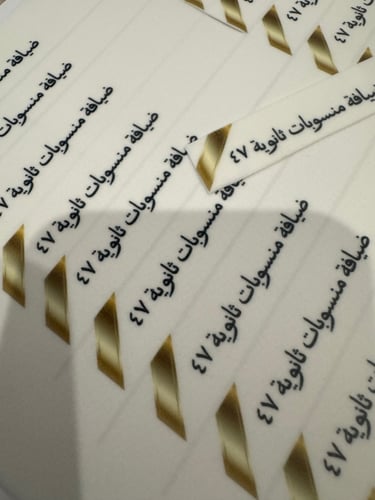 ضيافة منسوبات ثانوية ٤٧
ضيافة منسوبات ثانوية ٤٧
ضيافة منسوبات ثانوية ٤٧
ضيافة منسوبات ثانوية ٤٧
ضيافة منسوبات ثانوية ٤٧
ضيافة منسوبات ثانوية ٤٧
ضيافة منسوبات ثانوية ٤٧
ثانوية ٤٧
ثانوية ٤٧